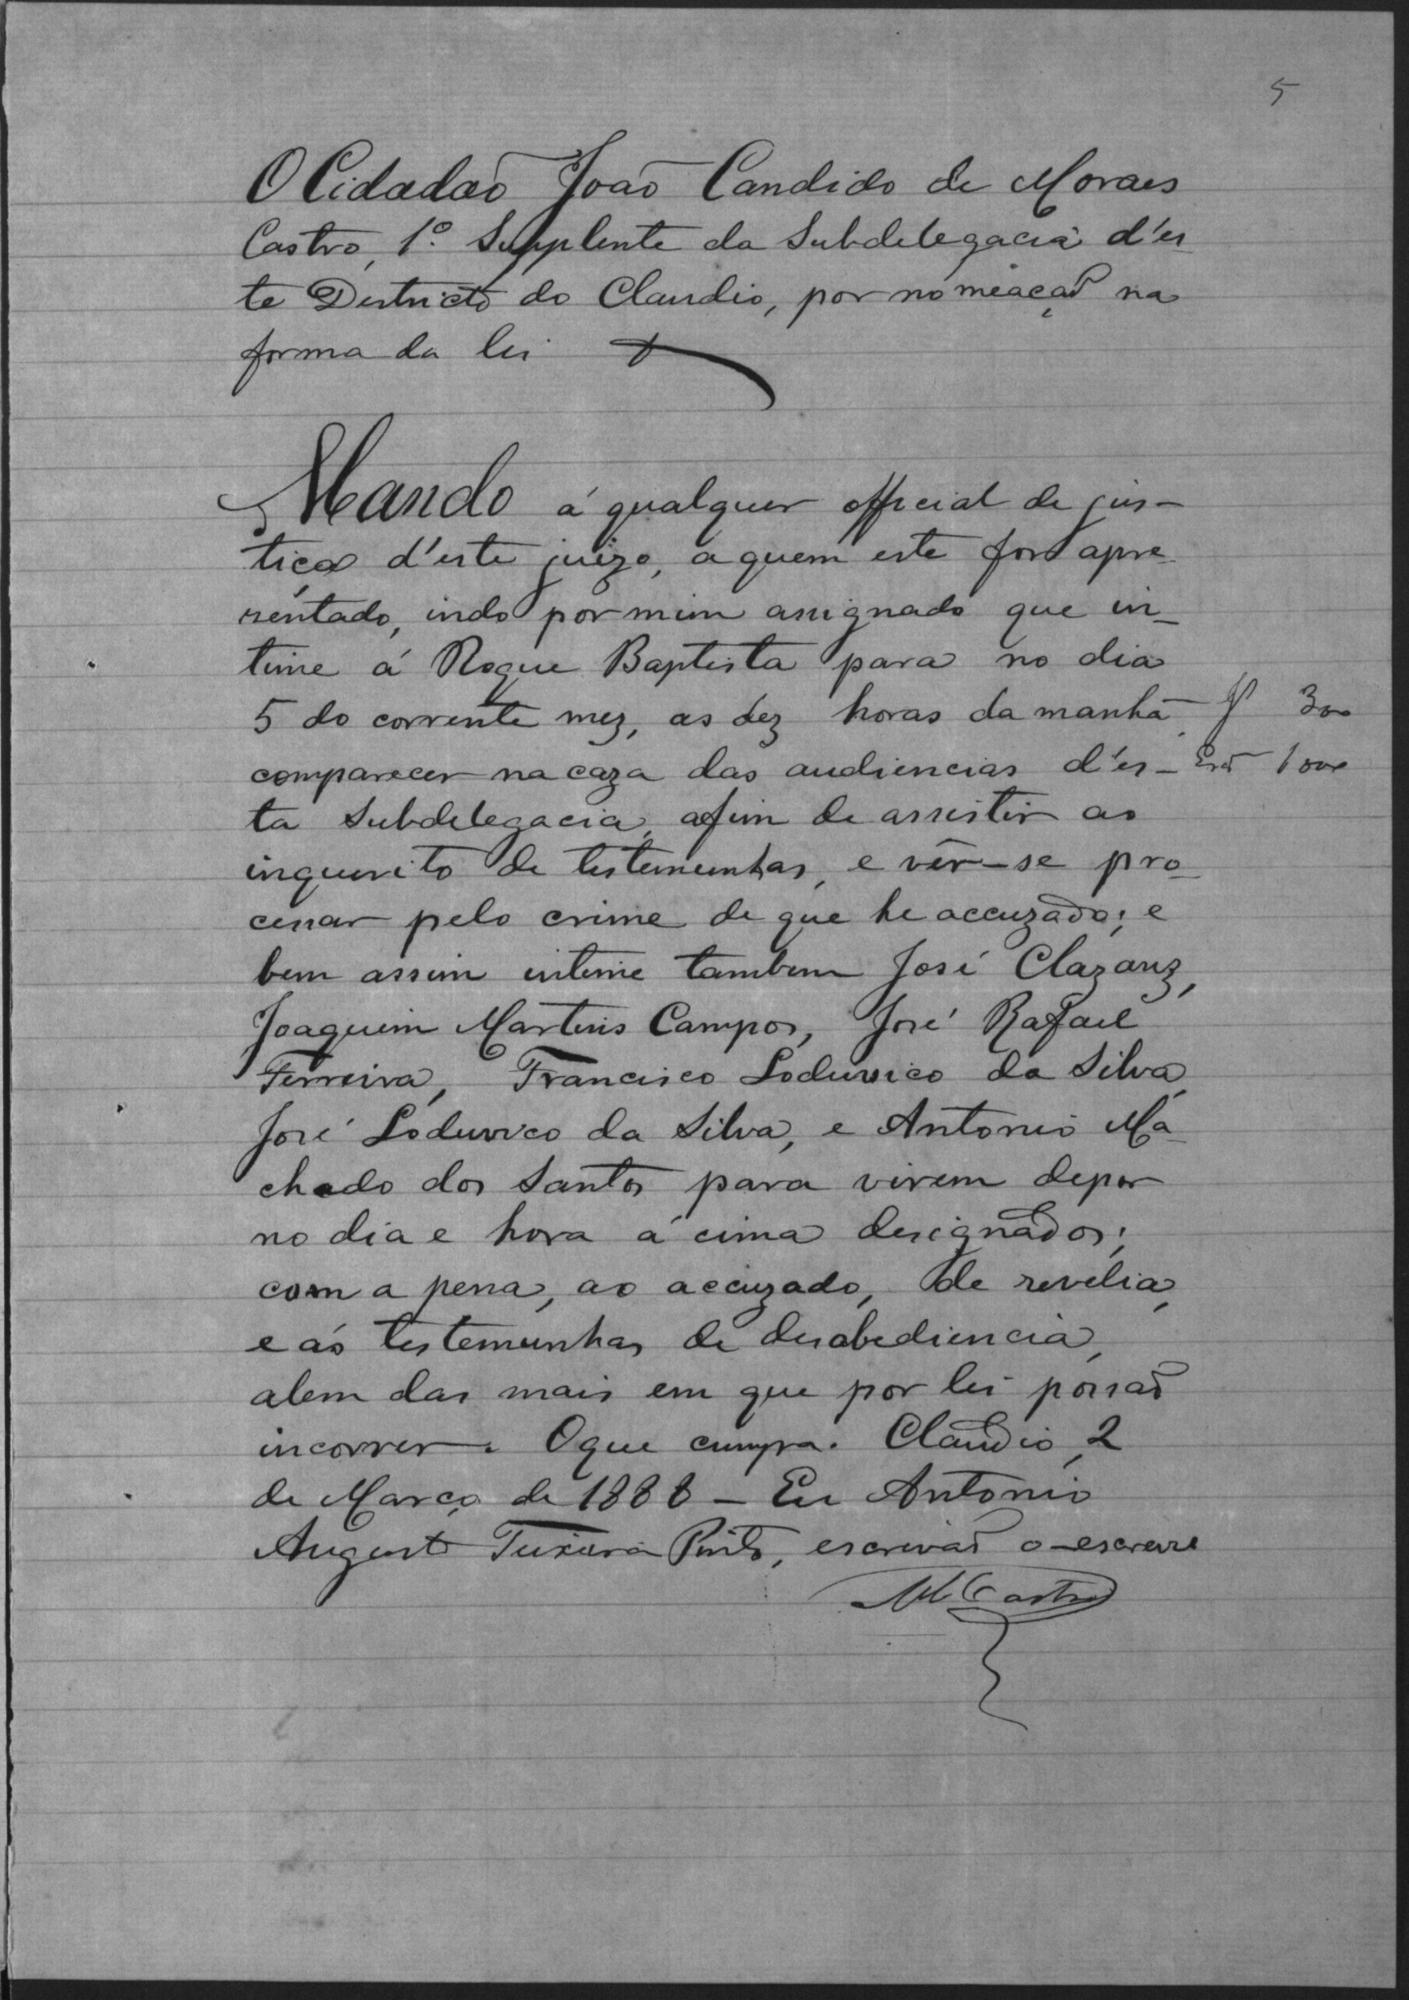 5
O Cidadaõ Joaõ Candido de Moraes
Castro, 1º Supplente da Subdelegacia d'es
te Districto do Claudio, por nomeaçaõ na
forma da lei
Mando á qualquer official de jus-
tiça d'este juizo, a quem este for apre
sentado, indo por mim assignado que in-
time á Roque Baptista para no dia
5 do corrente mez, as dez horas da manhã, J 300
comparecer na caza das audiencias d'es- Escm 1000
ta Subdelegacia, afim de assistir ao
inquerito de testemunhas, e vêr-se pro-
cessar pelo crime de que he accuzado; e
bem assim intime tambem José Clazanz,
Joaquim Martins Campos, José Rafael
Ferreira, Francisco Loduvico da Silva,
José Loduvico da Silva, e Antonio Ma-
chado dos Santos para virem depor
no dia e hora á cima designados;
com a pena, ao accuzado, de revelia,
e ás testemunhas de desobediencia,
alem das mais em que por lei possaõ
incorrer. O que cumpra. Claudio, 2
de Março de 1888 - Eu Antonio
Augusto Teixeira Pinto, escrivaõ o-escrevi
M Castro